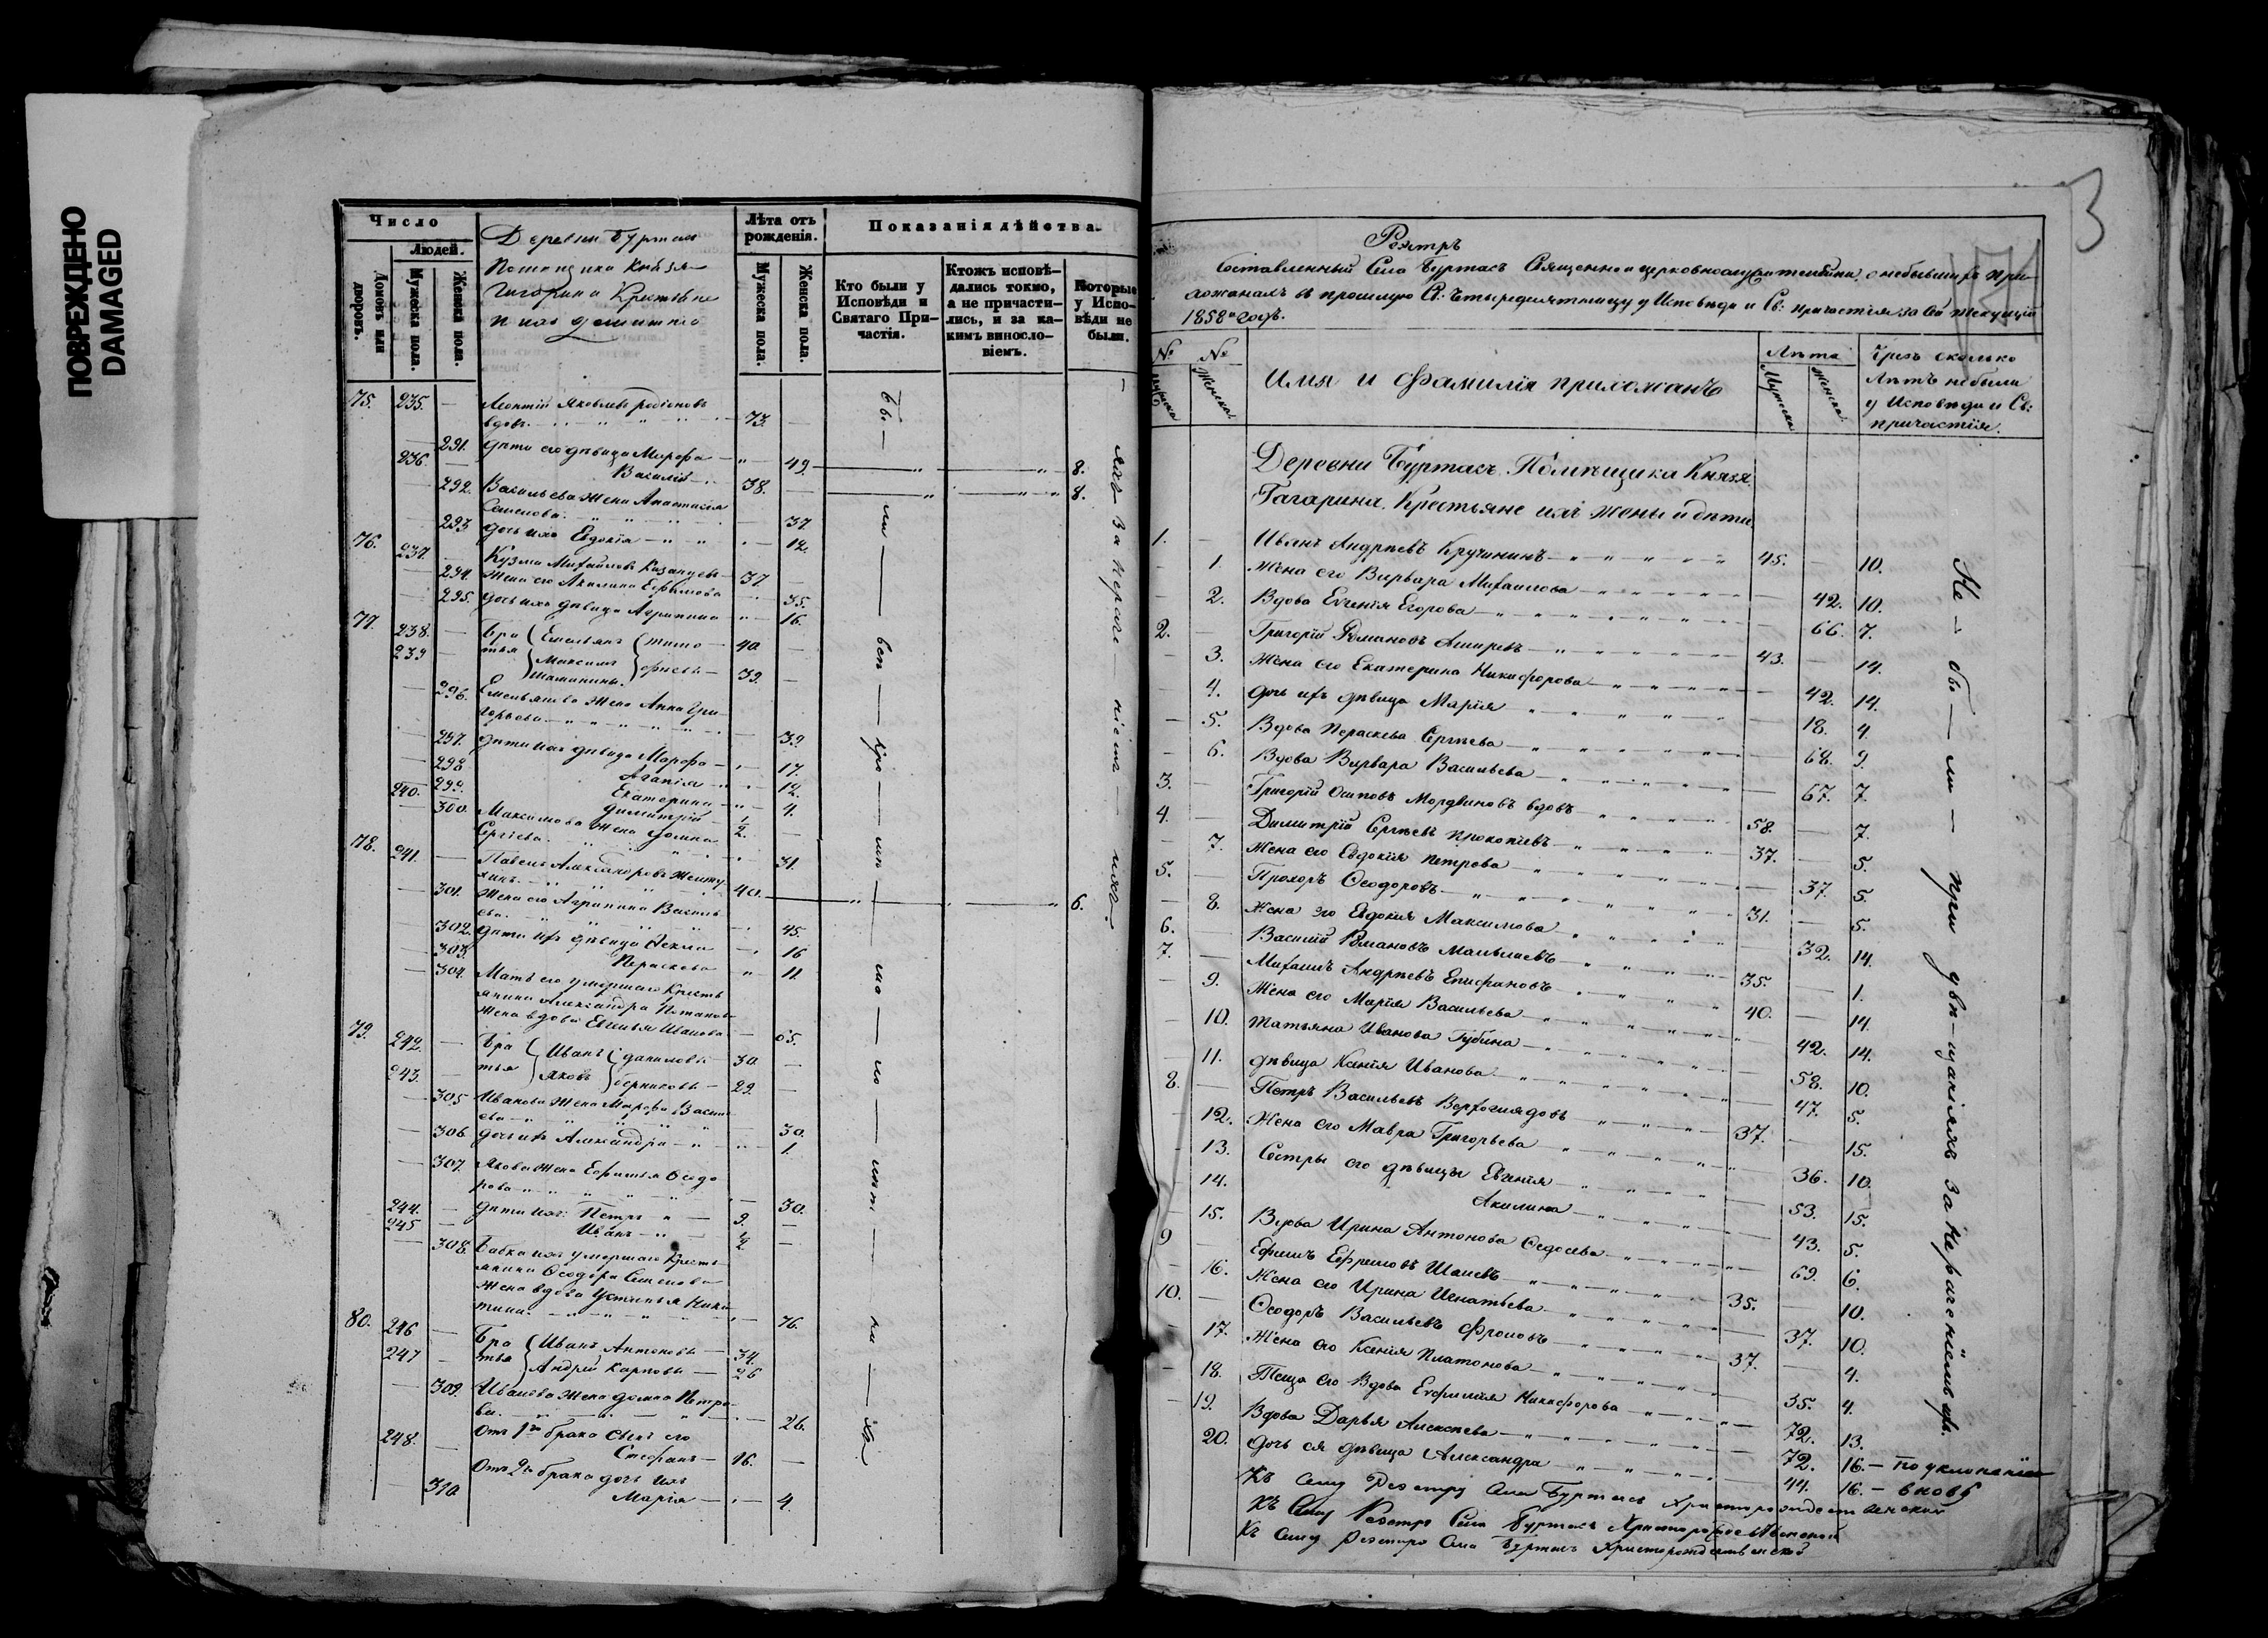 ПОВРЕЖДЕНО
DAMAGED
Число
Людей.
Домовъ или дворовъ.
Мужеска пола.
Женска пола.
Деревни Буртасъ
Помещика Князя
Гагарина Крестьяне
и ихъ домашніе
Лѣта отъ рожденія.
Мужеска пола.
Женска пола.
Показанія дѣйства.
Кто были у Исповѣди и Святаго Причастія.
Ктожъ исповѣдались токмо, а не причастились, и за какимъ винословіемъ.
Которые у Исповѣди не были.
75. 235. — Леонтій Яковлевъ Родіоновъ
вдовъ 73. —
— 291. Дѣти его дѣвица Марфа — 49. 8.
236. — Василій 38. — 8.
— 292. Васильева жена Анастасія
Семенова 37
— 293 Дочь ихъ Евдокія 12.
76. 237. — Кузма Михайловъ Казанцевъ 37 —
— 294. Жена его Акилина Ефимова 35.
— 295. Дочь ихъ дѣвица Агрипина 16.
77. 238. — Бра Емельянъ Тимо 40 —
239 — тья Максимъ фѣевы 39. —
Шамонины.
— 296. Емельянова жена Анна Гри-
горьева 39.
— 297. Дѣти ихъ дѣвица Марфа 17.
— 298 Агапія 12.
— 299. Екатерина 4.
240. — Димитрій ½ —
— 300. Максимова жена Домна
Сергѣева 31.
78. 241. — Павелъ Александровъ
40. 6.
— 301. Жена его Агрипина Василь
ева 45.
— 302. Дѣти ихъ дѣвица Ѳекла 16
— 303. Параскева 11
— 304. Мать его умершаго Кресть
янина Александра Потапова
жена вдова Евгенья Иванова 65.
79. 242. — Бра Иванъ Даниловы 30 —
243. — тья Яковъ 29. —
— 305 Иванова жена Марфа Васил
ева 30.
— 306. Дочь ихъ Александра 1.
— 307. Якова жена Ефимья Ѳедо
рова 30.
244. — Дѣти ихъ: Петръ 9. —
245 — Иванъ ½ —
— 308. Бабка ихъ умершаго Кресть
янина Ѳеодора Семенова
жена вдова Устинья Ники
тина 76.
80. 246 — Бра Иванъ Антоновы 34.
247 — тья Андрей Карповы 26
— 309. Иванова жена Домна Петро
ва 26.
Отъ 1го брака сынъ его
248. — Стефанъ 16. —
Отъ 2го брака дочь ихъ
— 310. Марія 4.
Бы — ли — вси —
3
Реэстръ
Составленный Села Буртасъ Священно и церковнослужителями, о небывшихъ при-
хожанахъ въ прошлую Св. Четыредесятницу у Исповѣди и Св: причастія за сей текущій
1858й годъ.
№ Мужеска
№ Женска
Имя и Фамилія прихожанъ
Лѣта
Мужеска
Женска
Чрезъ сколько
лѣтъ небыли
у Исповѣди и Св:
причастія.
Деревни Буртасъ Помѣщика Князя
Гагарина. Крестьяне ихъ жены и дѣти
1. — Иванъ Андреевъ Кручининъ 45. — 10.
— 1. Жена его Варвара Михайлова 42. 10.
— 2. Вдова Евгенія Егорова 66. 7.
2. — Григорій Романовъ 43. — 14.
— 3. Жена его Екатерина Никифорова 42. 14.
— 4. Дочь ихъ дѣвица Марія 18. 4.
— 5. Вдова Параскева Сергѣева 68. 9.
— 6. Вдова Варвара Васильева 67. 7.
3. — Григорій Осиповъ Мордвиновъ вдовъ 58. — 7.
4. — Димитрій Сергѣевъ Прокопіевъ 37. — 5.
— 7. Жена его Евдокія Петрова 37. 5.
5. — Прохоръ Ѳеодоровъ 31. — 5.
— 8. Жена его Евдокія Максимова 32. 14.
6. — Василій Романовъ 35. — 1.
7. — Михаилъ Андреевъ Епифановъ 40. — 14.
— 9. Жена его Марія Васильева 42. 14.
— 10. Татьяна Иванова Губина 58. 10.
— 11. Дѣвица Ксенія Иванова 47. 5.
8. — Петръ Васильевъ Верхоглядовъ 37. — 15.
— 12. Жена его Мавра Григорьева 36. 10.
— 13. Сестры его дѣвицы Евгенія 53. 15.
— 14. Акилина 43. 5.
— 15. Вдова Ирина Антонова Ѳедосева 69. 6.
9 — Ефимъ Ефремовъ 35. — 10.
— 16. Жена его Ирина Игнатьева 37. 10.
10. — Ѳеодоръ Васильевъ Фроловъ 37. — 4.
— 17. Жена его Ксенія Платонова 35. 4.
— 18. Теща его вдова Евфимія Никифорова 72. 13.
— 19. Вдова Дарья Алексѣева 72. 16. — по уклоненію
20. Дочь ея дѣвица Александра 44. 16. — вновѣ
Не — бы — ли — при увѣ — щаніяхъ за нераченіемъ ихъ
Къ сему Реэстру Села Буртасъ Христорождественской
Къ сему Реэстру Села Буртасъ Христорождественской
Къ сему Реэстру Села Буртасъ Христорождественской